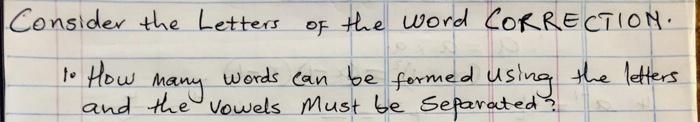 Consider the Letters of the word CORRECTION.
1. How many words can be formed using the letters
and the vowels Must be Separated?